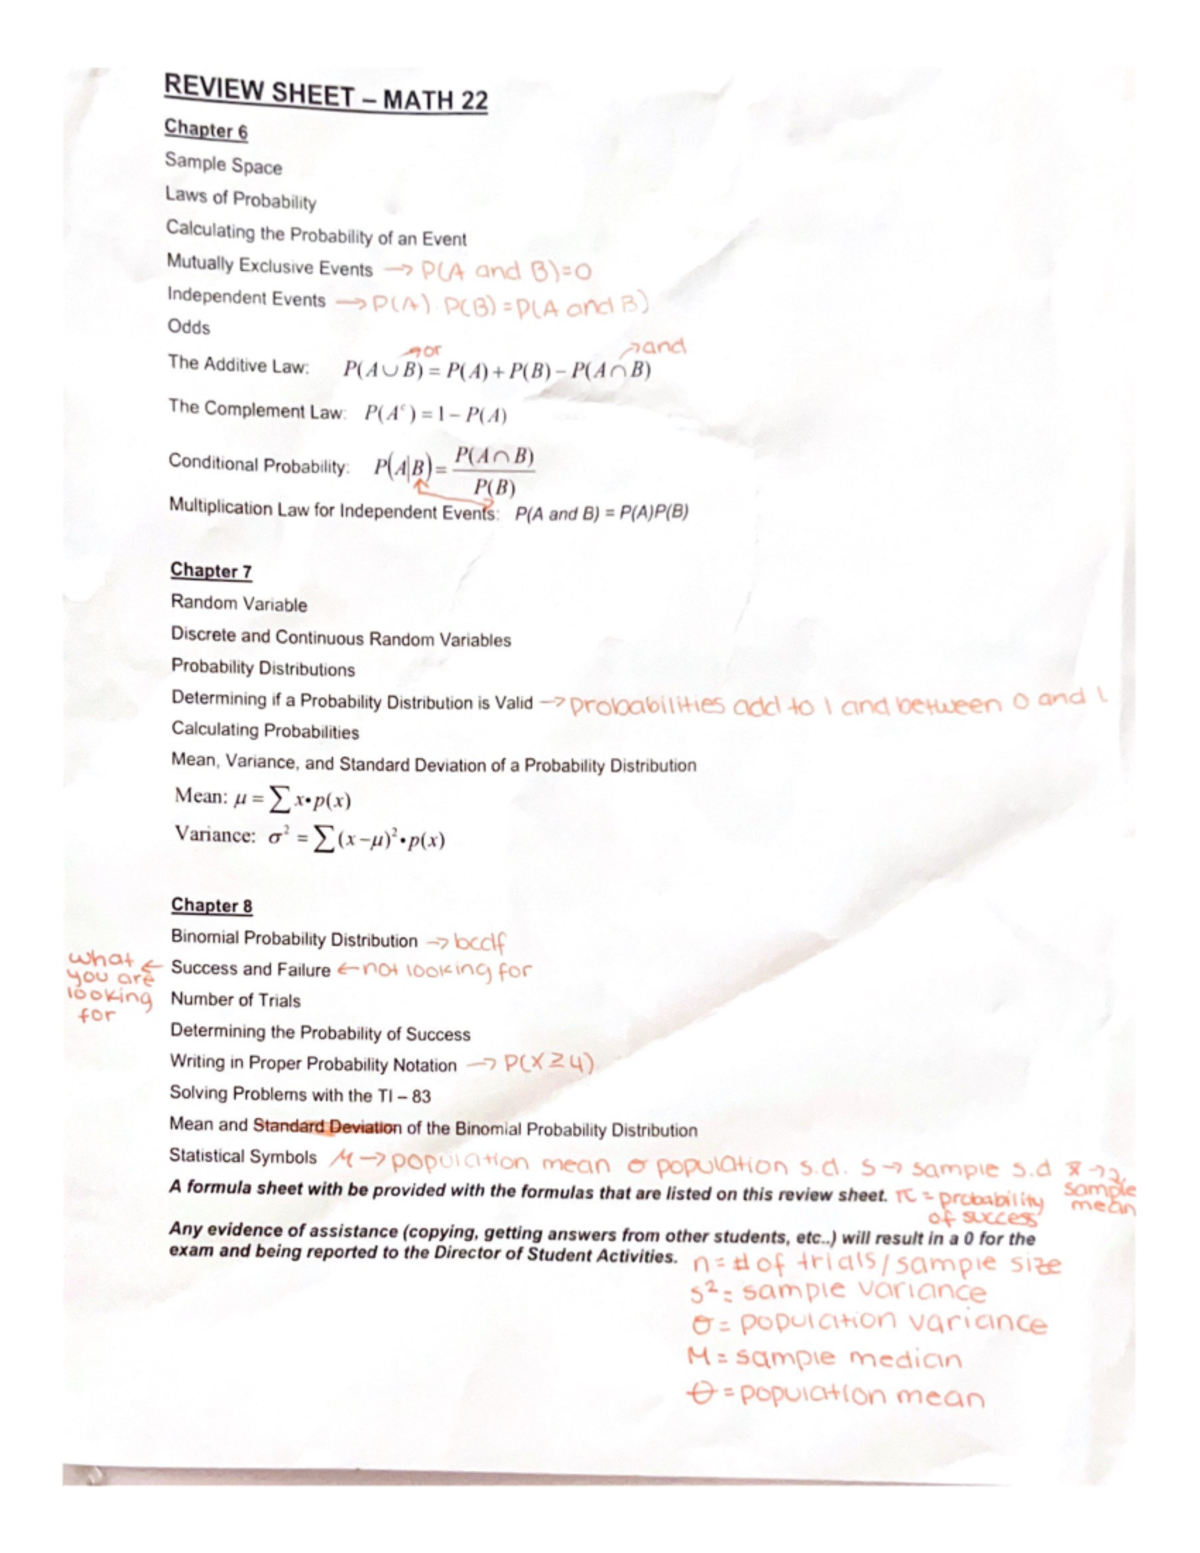 REVIEW SHEET – MATH 22
Chapter 6
Sample Space
Laws of Probability
Calculating the Probability of an Event
Mutually Exclusive Events → P(A and B)=0
Independent Events → P(A)·P(B)=P(A and B)
Odds
→or →and
The Additive Law: P(A∪B) = P(A)+P(B)–P(A∩B)
The Complement Law: P(Aᶜ) = 1 – P(A)
Conditional Probability: P(A|B) = P(A∩B) / P(B)
Multiplication Law for Independent Events: P(A and B) = P(A)P(B)
Chapter 7
Random Variable
Discrete and Continuous Random Variables
Probability Distributions
Determining if a Probability Distribution is Valid → probabilities add to 1 and between 0 and 1
Calculating Probabilities
Mean, Variance, and Standard Deviation of a Probability Distribution
Mean: μ = ∑ x•p(x)
Variance: σ² = ∑(x–μ)²•p(x)
Chapter 8
Binomial Probability Distribution → bcdf
what you are looking for ← Success and Failure ← not looking for
Number of Trials
Determining the Probability of Success
Writing in Proper Probability Notation → P(X≥4)
Solving Problems with the TI – 83
Mean and Standard Deviation of the Binomial Probability Distribution
Statistical Symbols M→population mean σ population s.d. S→ sample s.d x̄ → sample mean
A formula sheet with be provided with the formulas that are listed on this review sheet. π = probability of success
Any evidence of assistance (copying, getting answers from other students, etc..) will result in a 0 for the
exam and being reported to the Director of Student Activities.
n = # of trials/sample size
s² = sample variance
σ = population variance
M = sample median
θ = population mean